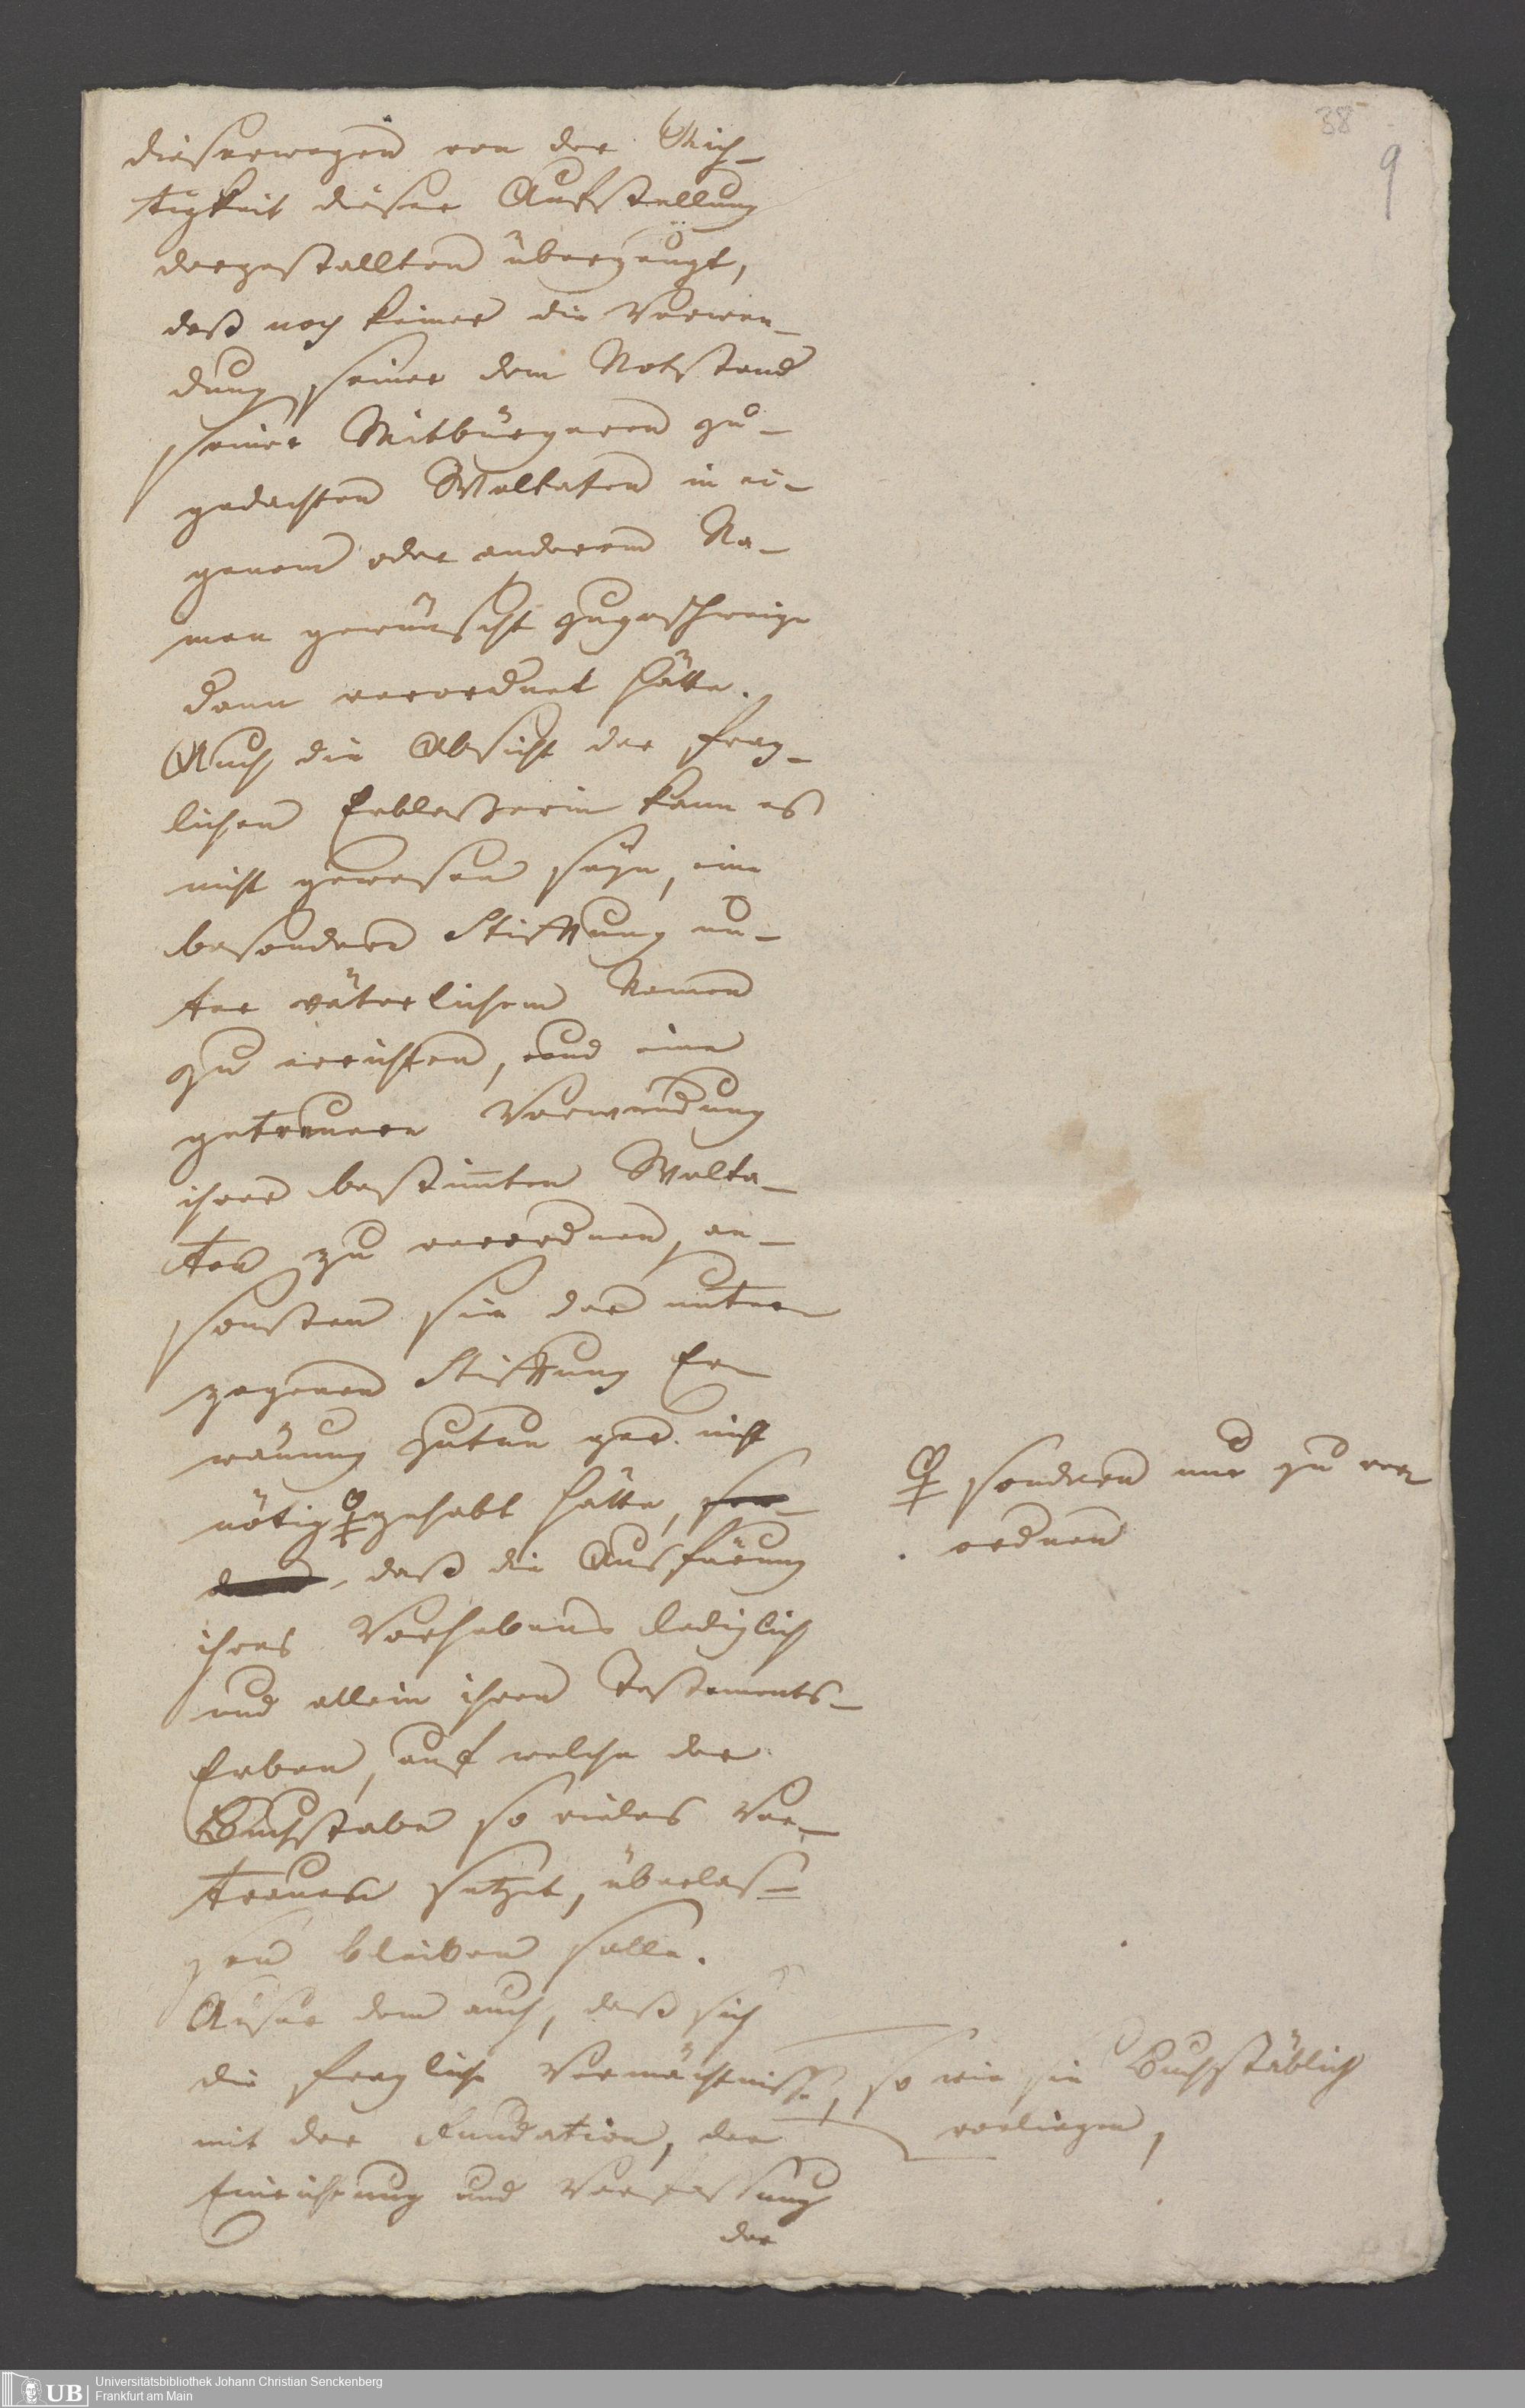 38
9
dieserwegen von der Rich-
tigkeit dieser Aufstellung
dergestallten überzeugt,
daß noch keiner die Verwen-
dung seiner dem Notstand
seiner Mitbürgeren zu-
gedachten Woltaten in ei-
genem oder anderem Na-
men gewünscht zugeschweige
dann verordnet hätte.
Auch die Absicht der frag-
lichen Erblaßerin kann es
nicht gewesen seÿn, eine
besondere Stifftung un-
ter väterlichem Namen
zu errichten, und eine
getreuere Verwendung
ihrer bestimten Wolta-
ten zu verordnen, an-
sonsten sie der unter-
zogenen Stifftung Er-
wänung zutun gar nicht
nötig gehabt hätte,
daß die Ausfürung
ihres Vorhabens lediglich
und allein ihren Testaments-
Erben, auf welche der
Buchstabe so vieles Ver-
trauen setzet, überlas-
sen bleiben solle.
sondern nur zu ver-
ordnen
Auser dem auch, daß sich
die fragliche Vermächtnisse, so wie sie Buchstäblich
vorliegen,
mit der Fundation, der
Einrichtung und Verfassung
der
UB Universitätsbibliothek Johann Christian Senckenberg
Frankfurt am Main